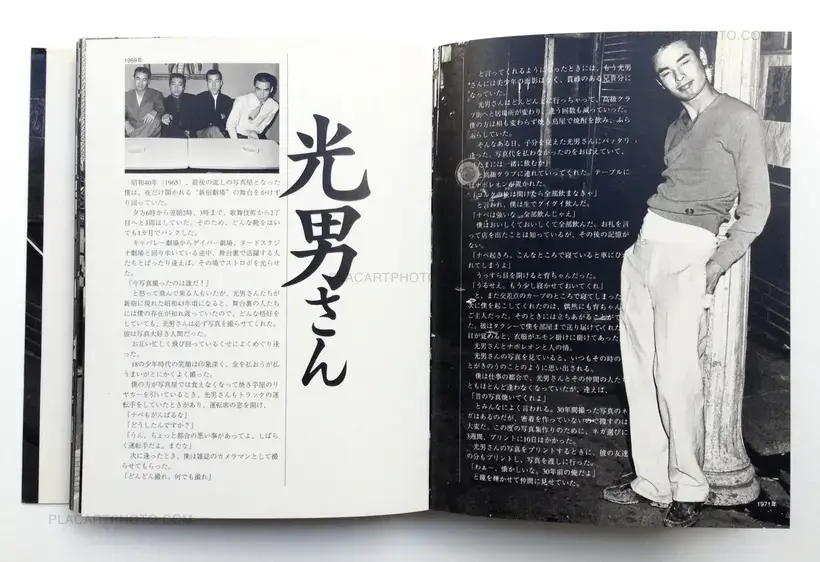 1969年
光男さん
昭和40年（1965）、最後の流しの写真屋となった
僕は、夜だけ開かれる“新宿劇場”の舞台をかけず
り回っていた。
夕方6時から翌朝2時、3時まで、歌舞伎町から2丁
目へと3周はしていた。そのため、どんな靴をはい
ても1カ月でパンクした。
キャバレー劇場からゲイバー劇場、ヌードスタジ
オ劇場と回り歩いている途中、舞台裏で活躍する人
たちとばったり逢えば、その場でストロボを光らせ
た。
「今写真撮ったのは誰だ！」
と怒って飛んで来る人もいたが、光男さんたちが
新宿に現れた昭和43年頃になると、舞台裏の人たち
には僕の存在が知れ渡っていたので、どんな格好を
していても、光男さんは必ず写真を撮らせてくれた。
彼は写真大好き人間だった。
お互い忙しく飛び回っているくせによくめぐり逢
った。
18の少年時代の笑顔は印象深く、金を払おうが払
うまいがとにかくよく撮った。
僕の方が写真屋では食えなくなって焼き芋屋のリ
ヤカーを引いているとき、光男さんもトラックの運
転手をしていたときがあり、運転席の窓を開け、
「ナベもがんばるな」
「どうしたんですか？」
「うん、ちょっと都合の悪い事があってよ、しばら
く運転手だよ。またな」
次に逢ったとき、僕は雑誌のカメラマンとして撮
らせてもらった。
「どんどん撮れ、何でも撮れ」
と言ってくれるようになったときには、もう光男
さんには美少年の面影はなく、貫禄のある兄貴分に
なっていた。
光男さんはどんどん上に行っちゃって、高級クラ
ブ街へと居場所が変わり、逢う回数も減っていった。
僕の方は相も変わらず焼き鳥屋で焼酎を飲み、ぶら
ぶらしていた。
そんなある日、子分を従えた光男さんにバッタリ
逢った。写真代を払わなかったのをおぼえていて、
「たまには一緒に飲むか」
と高級クラブに連れていってくれた。テーブルに
はナポレオンが置かれた。
「コルク

は開けたら全部飲まなきゃ」
と言われ、僕は生でダイダイ飲んだ。
「ナベは強いな、全部飲んじゃえ」
僕はおいしくておいしくて全部飲んだ。お礼を言
って店を出たことは知っているが、その後の記憶が
ない。
「ナベ起きろ、こんなところで寝ていると車にひか
れてしまうよ」
うっすら目を開けると育ちゃんだった。
「うるせえ、もう少し寝かせておいてくれ」
と、また交差点のカーブのところで寝てしまった
次に僕を起こしてくれたのは、偶然にも育ちゃんの
ご主人だった。そのときには立ちあがることができ
た。彼はタクシーで僕を部屋まで送り届けてくれた
目が覚めると、衣服がエモン掛けに掛けてあった。
光男さんとナポレオンと人の情。
光男さんの写真を見ていると、いつもその時の
とがきのうのことのように思い出される。
僕は仕事の都合で、光男さんとその仲間の人た
ともほとんど逢わなくなっていたが、逢えば、
「昔の写真焼いてくれよ」
とみんなによく言われる。30年間撮った写真のネ
ガはあるのだが、密着を作っていないので探すのは
大変だ。この度の写真集作りのために、ネガ選びに
3週間、プリントに10日はかかった。
光男さんの写真をプリントするときに、彼の友達
の分もプリントし、写真を渡しに行った。
「わぁー、懐かしいな。30年前の俺だよ」
と瞳を輝かせて仲間に見せていた。
1971年
PLACARTPHOTO.COM
PLACARTPHOTO
PLACARTPHOTO.COM